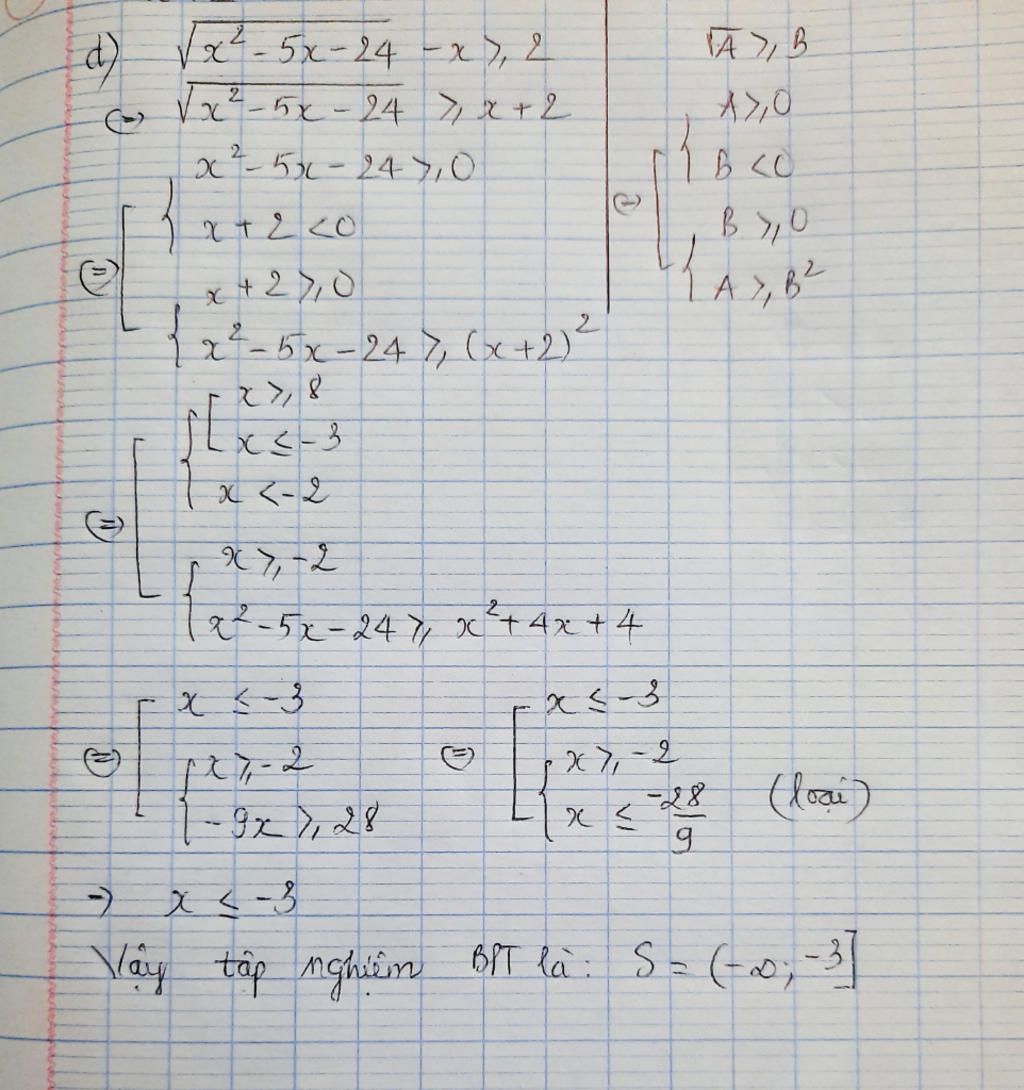 d) √(x² - 5x - 24) - x ⩾ 2
⇔ √(x² - 5x - 24) ⩾ x + 2
x² - 5x - 24 ⩾ 0
⇔ [ { x + 2 < 0
x + 2 ⩾ 0
{ x² - 5x - 24 ⩾ (x + 2)²
[ x ⩾ 8
x ≤ -3
x < -2
⇔ [ { x ⩾ -2
{ x² - 5x - 24 ⩾ x² + 4x + 4
⇔ [ x ≤ -3
{ x ⩾ -2
-9x ⩾ 28
⇔ [ x ≤ -3
{ x ⩾ -2
x ≤ -28/9 (loại)
→ x ≤ -3
Vậy tập nghiệm BPT là: S = (-∞; -3]
√A ⩾ B
A ⩾ 0
⇔ [ { B < 0
B ⩾ 0
{ A ⩾ B²